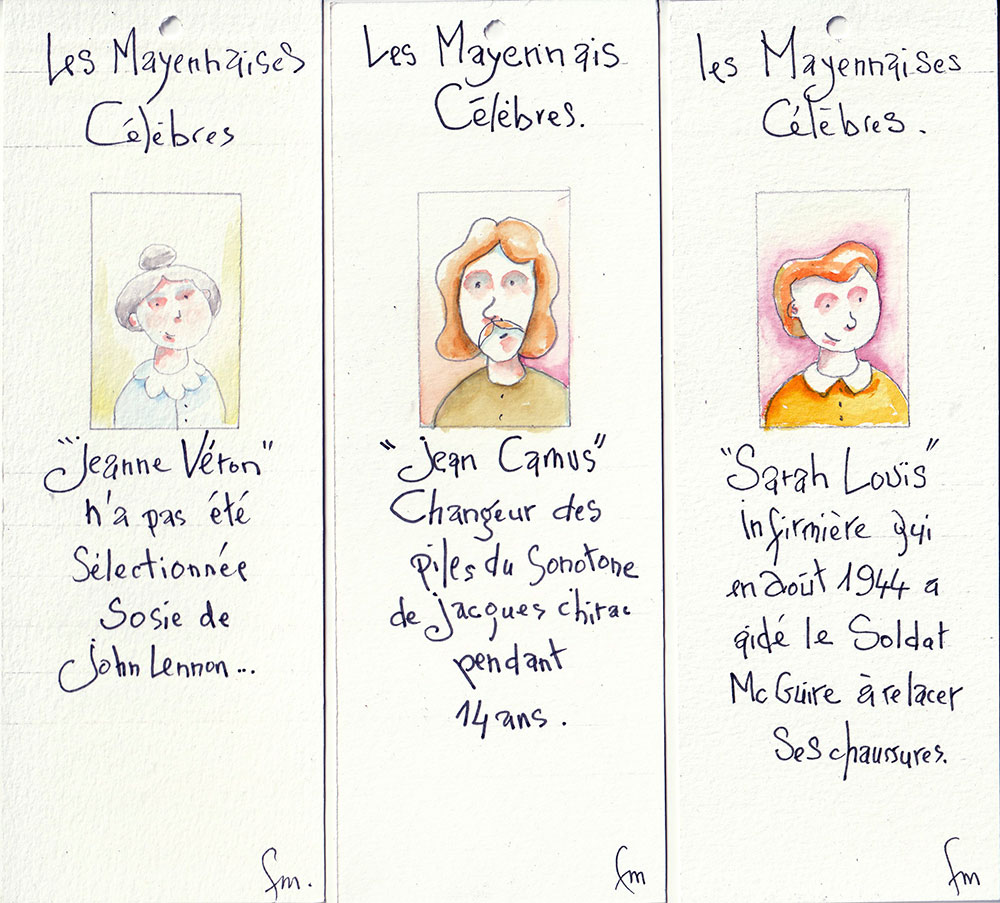 Les Mayennaises
Célèbres
"Jeanne Véron"
n'a pas été
Sélectionnée
Sosie de
John Lennon...
fm.
Les Mayennais
Célèbres.
"Jean Camus"
Changeur des
piles du Sonotone
de jacques chirac
pendant
14 ans.
fm
les Mayennaises
Célèbres.
"Sarah Louis"
infirmière qui
en août 1944 a
aidé le Soldat
Mc Guire à relacer
Ses chaussures.
fm